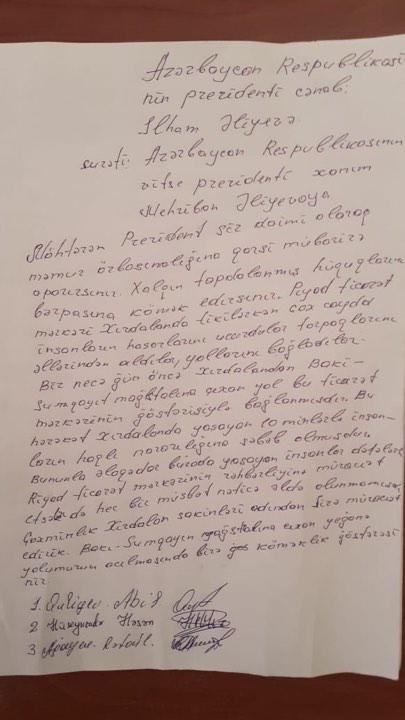 Azərbaycan Respublikası
nın prezidenti cənab:
İlham Əliyevə
surəti: Azərbaycan Respublikasının
vitse prezidenti xanım
Mehriban Əliyevaya
Möhtərəm Prezident siz daimi olaraq
məmur özbaşınalığına qarşı mübarizə
aparırsınız. Xalqın tapdalanmış hüquqlarını
bərpasına kömək edirsınız. Piyod ticarət
mərkəzi Xırdalanda tikilərkən çox sayda
insanların hasarlarını ucurdular torpaqlarını
əllərindən aldılar, yollarını bağladılar.
Bir neçə gün öncə Xırdalandan Bakı-
Sumqayıt mağıstalına çıxan yol bu ticarət
mərkəzinin göstərişiylə bağlanmışdır. Bu
hərəkət Xırdalanda yaşayan 10 minlərlə insan-
ların haqlı narazılığına səbəb olmuşdur.
Bununla əlaqədar burada yaşayan insanlar dəfələrlə
Piyod ticarət mərkəzinin rəhbərliyinə müraciət
etsədə heç bir müsbət nəticə əldə olunmamışdır
Çoxminlik Xırdalan sakinləri adından Sizə müraciət
edirik. Bakı-Sumqayıt mağıstralına çıxan yeganə
yolumuzun açılmasında bizə köməklik göstərəsi
niz
1. Quliyev Abil
2 Hüseynzadə Həsən
3